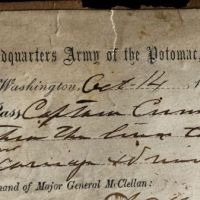 dquarters Army of the Potomac,
Washington, Oct 14 1
ass Captain Cum
the lines
carriage &
mand of Major General McClellan: